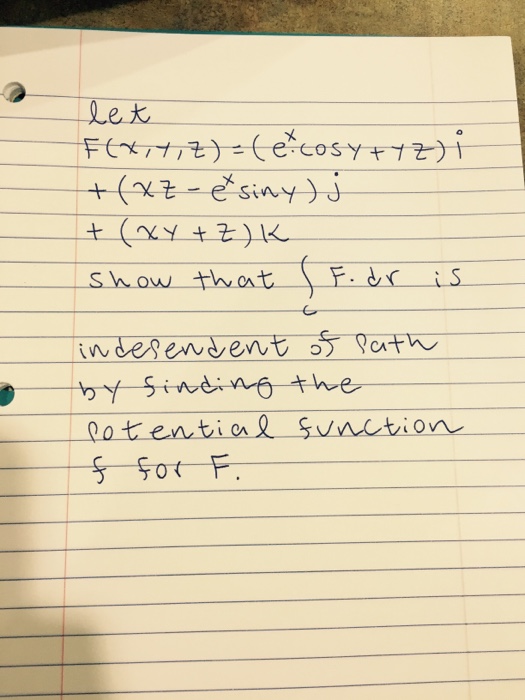 let
F(x,y,z) = (e^x cosy + yz) i
+ (xz - e^x siny) j
+ (xy + z) k
show that ∫_c F. dr is
independent of path
by finding the
potential function
f for F.